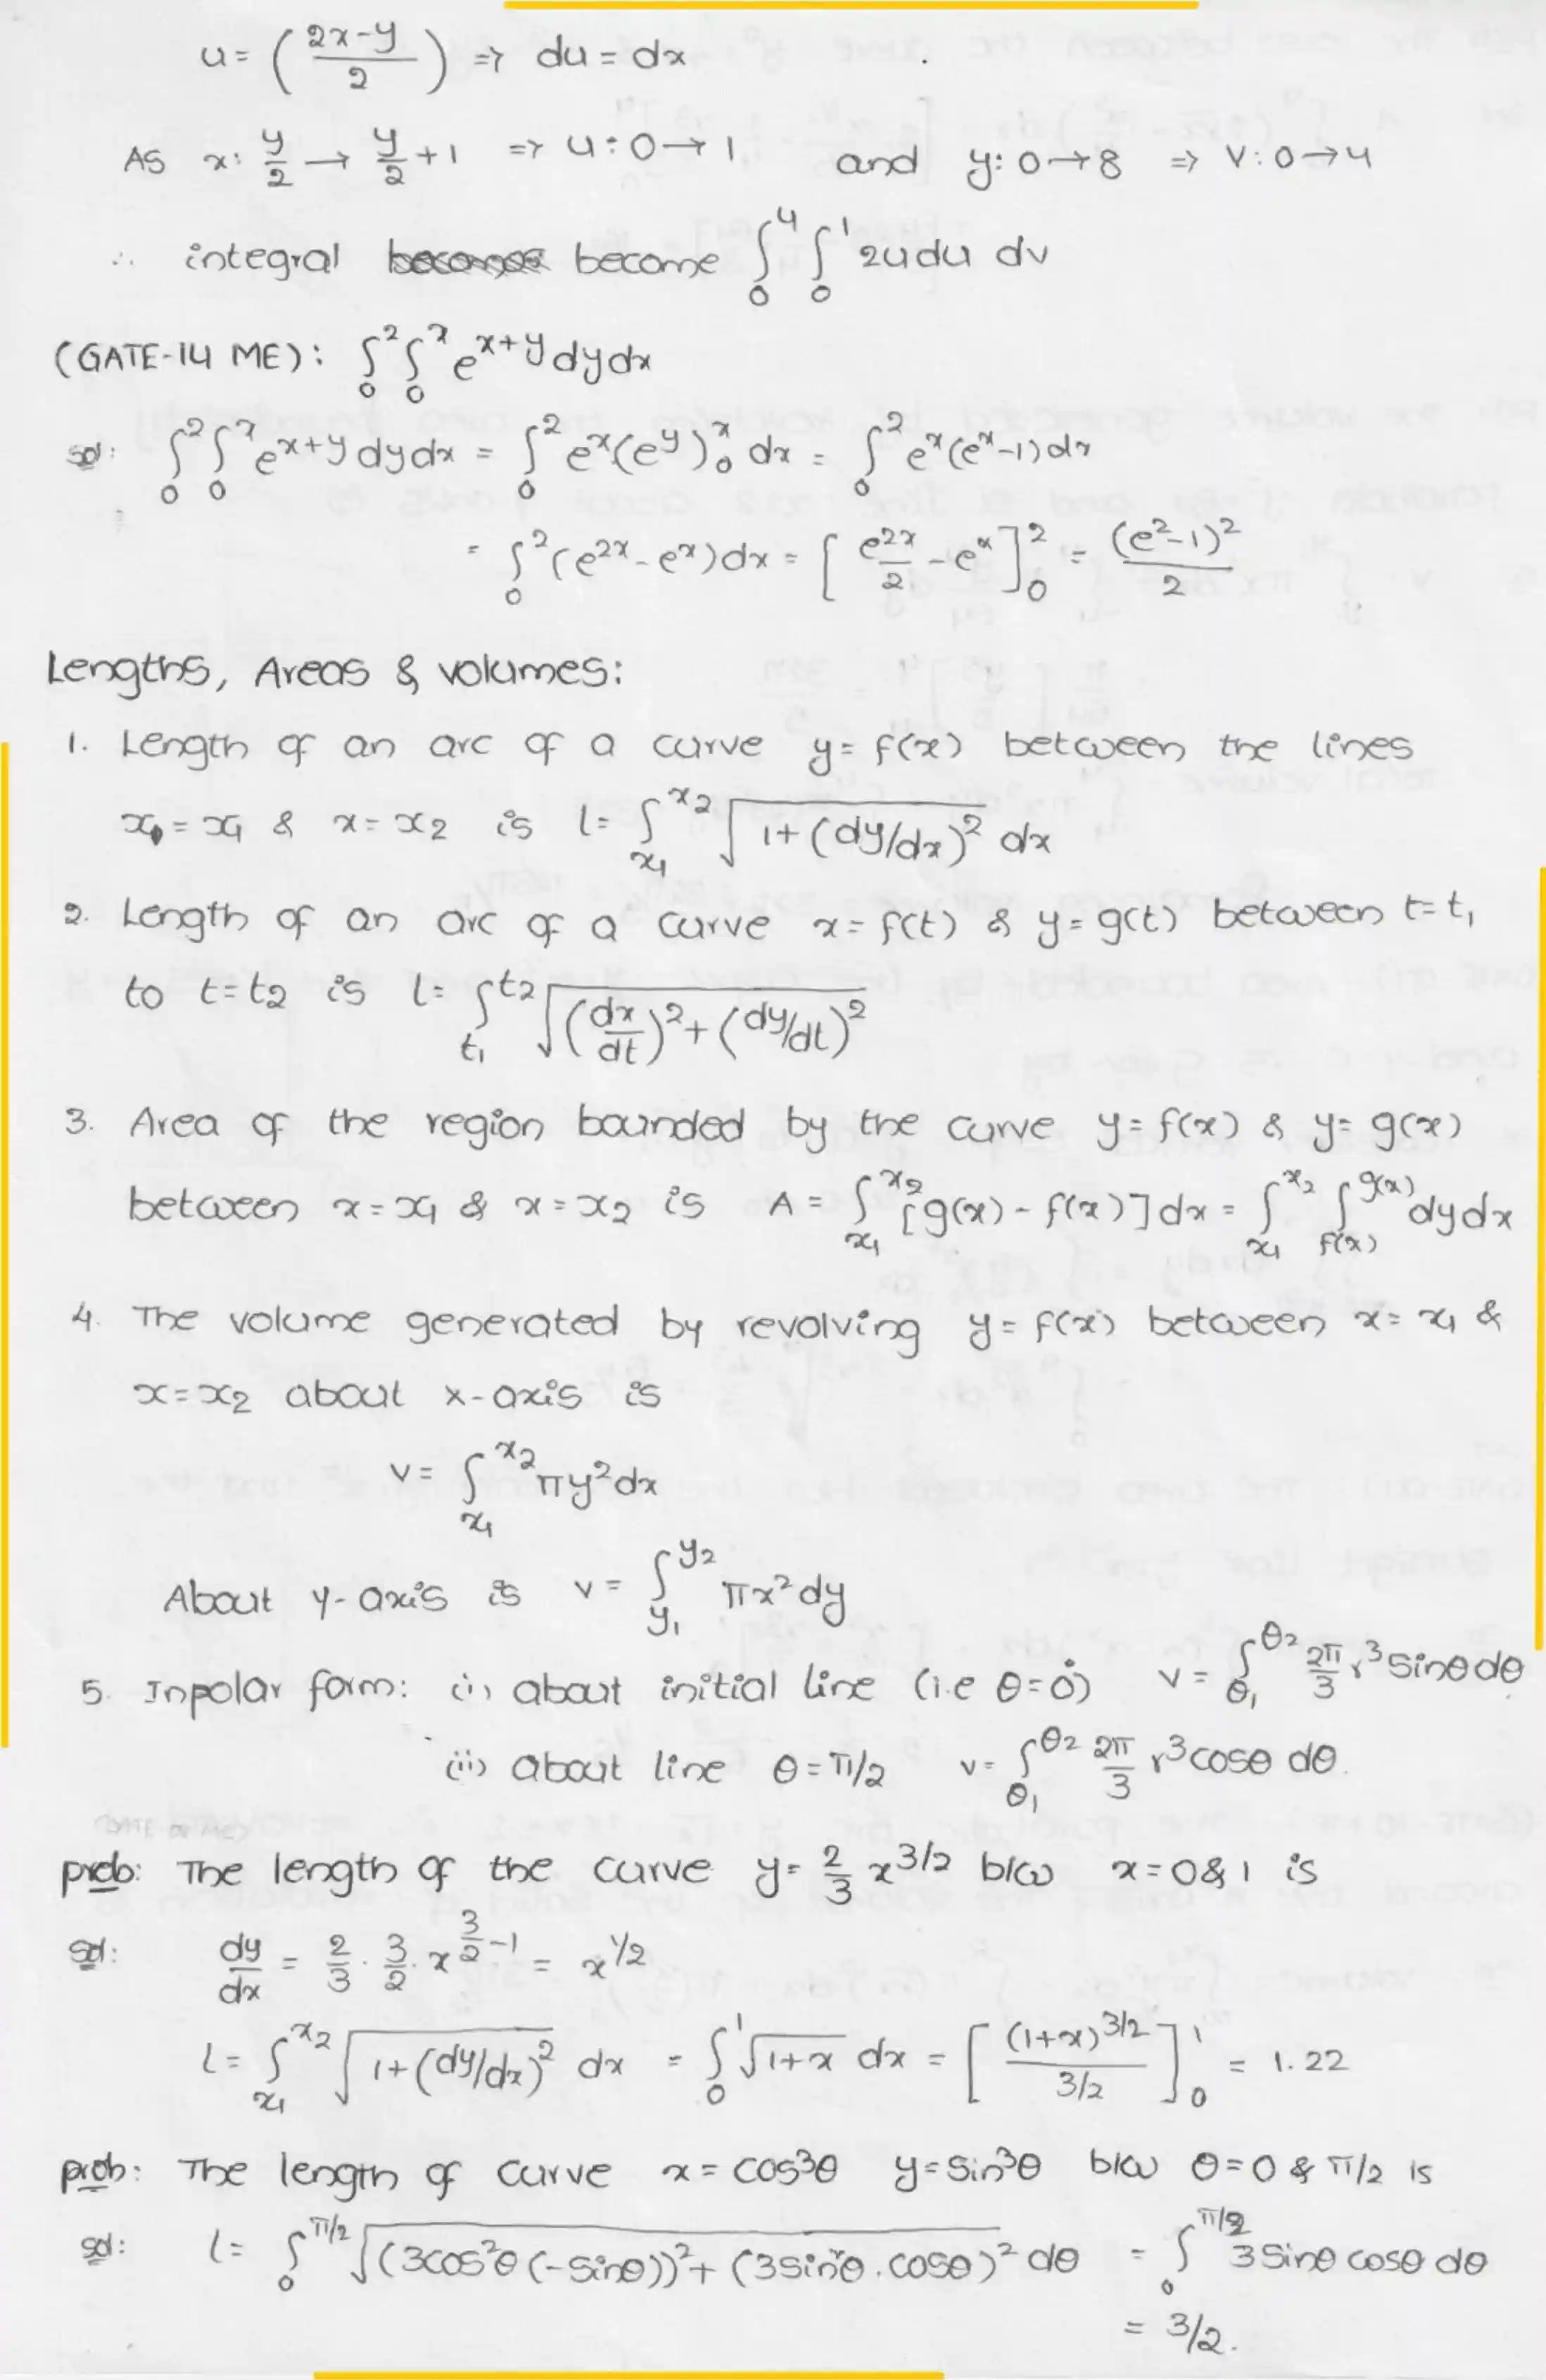 u = ( (2x-y)/2 ) => du = dx
As x: y/2 → y/2 + 1 => u: 0 → 1 and y: 0 → 8 => v: 0 → 4
∴ integral become ∫₀⁴ ∫₀¹ 2u du dv
(GATE-14 ME): ∫₀² ∫₀ˣ e^(x+y) dy dx
sol: ∫₀² ∫₀ˣ e^(x+y) dy dx = ∫₀² eˣ(e^y)₀ˣ dx = ∫₀² eˣ(eˣ-1) dx
= ∫₀² (e^(2x) - eˣ) dx = [ e^(2x)/2 - eˣ ]₀² = (e²-1)²/2
Lengths, Areas & volumes:
1. Length of an arc of a curve y = f(x) between the lines
x = x₁ & x = x₂ is l = ∫_{x₁}^{x₂} √(1+(dy/dx)²) dx
2. Length of an arc of a curve x = f(t) & y = g(t) between t = t₁
to t = t₂ is l = ∫_{t₁}^{t₂} √((dx/dt)² + (dy/dt)²)
3. Area of the region bounded by the curve y = f(x) & y = g(x)
between x = x₁ & x = x₂ is A = ∫_{x₁}^{x₂} [g(x) - f(x)] dx = ∫_{x₁}^{x₂} ∫_{f(x)}^{g(x)} dy dx
4. The volume generated by revolving y = f(x) between x = x₁ &
x = x₂ about x-axis is
v = ∫_{x₁}^{x₂} πy² dx
About y-axis is v = ∫_{y₁}^{y₂} πx² dy
5. Inpolar form: (i) about initial line (i.e θ = 0) v = ∫_{θ₁}^{θ₂} 2π/3 r³ sinθ dθ
(ii) about line θ = π/2 v = ∫_{θ₁}^{θ₂} 2π/3 r³ cosθ dθ.
prob: The length of the curve y = 2/3 x^(3/2) b/w x = 0 & 1 is
sol: dy/dx = 2/3 · 3/2 · x^(3/2 - 1) = x^(1/2)
l = ∫_{x₁}^{x₂} √(1+(dy/dx)²) dx = ∫₀¹ √(1+x) dx = [ (1+x)^(3/2) / (3/2) ]₀¹ = 1.22
prob: The length of curve x = cos³θ y = sin³θ b/w θ = 0 & π/2 is
sol: l = ∫₀^{π/2} √((3cos²θ(-sinθ))² + (3sin²θ.cosθ)²) dθ = ∫₀^{π/2} 3 sinθ cosθ dθ
= 3/2.